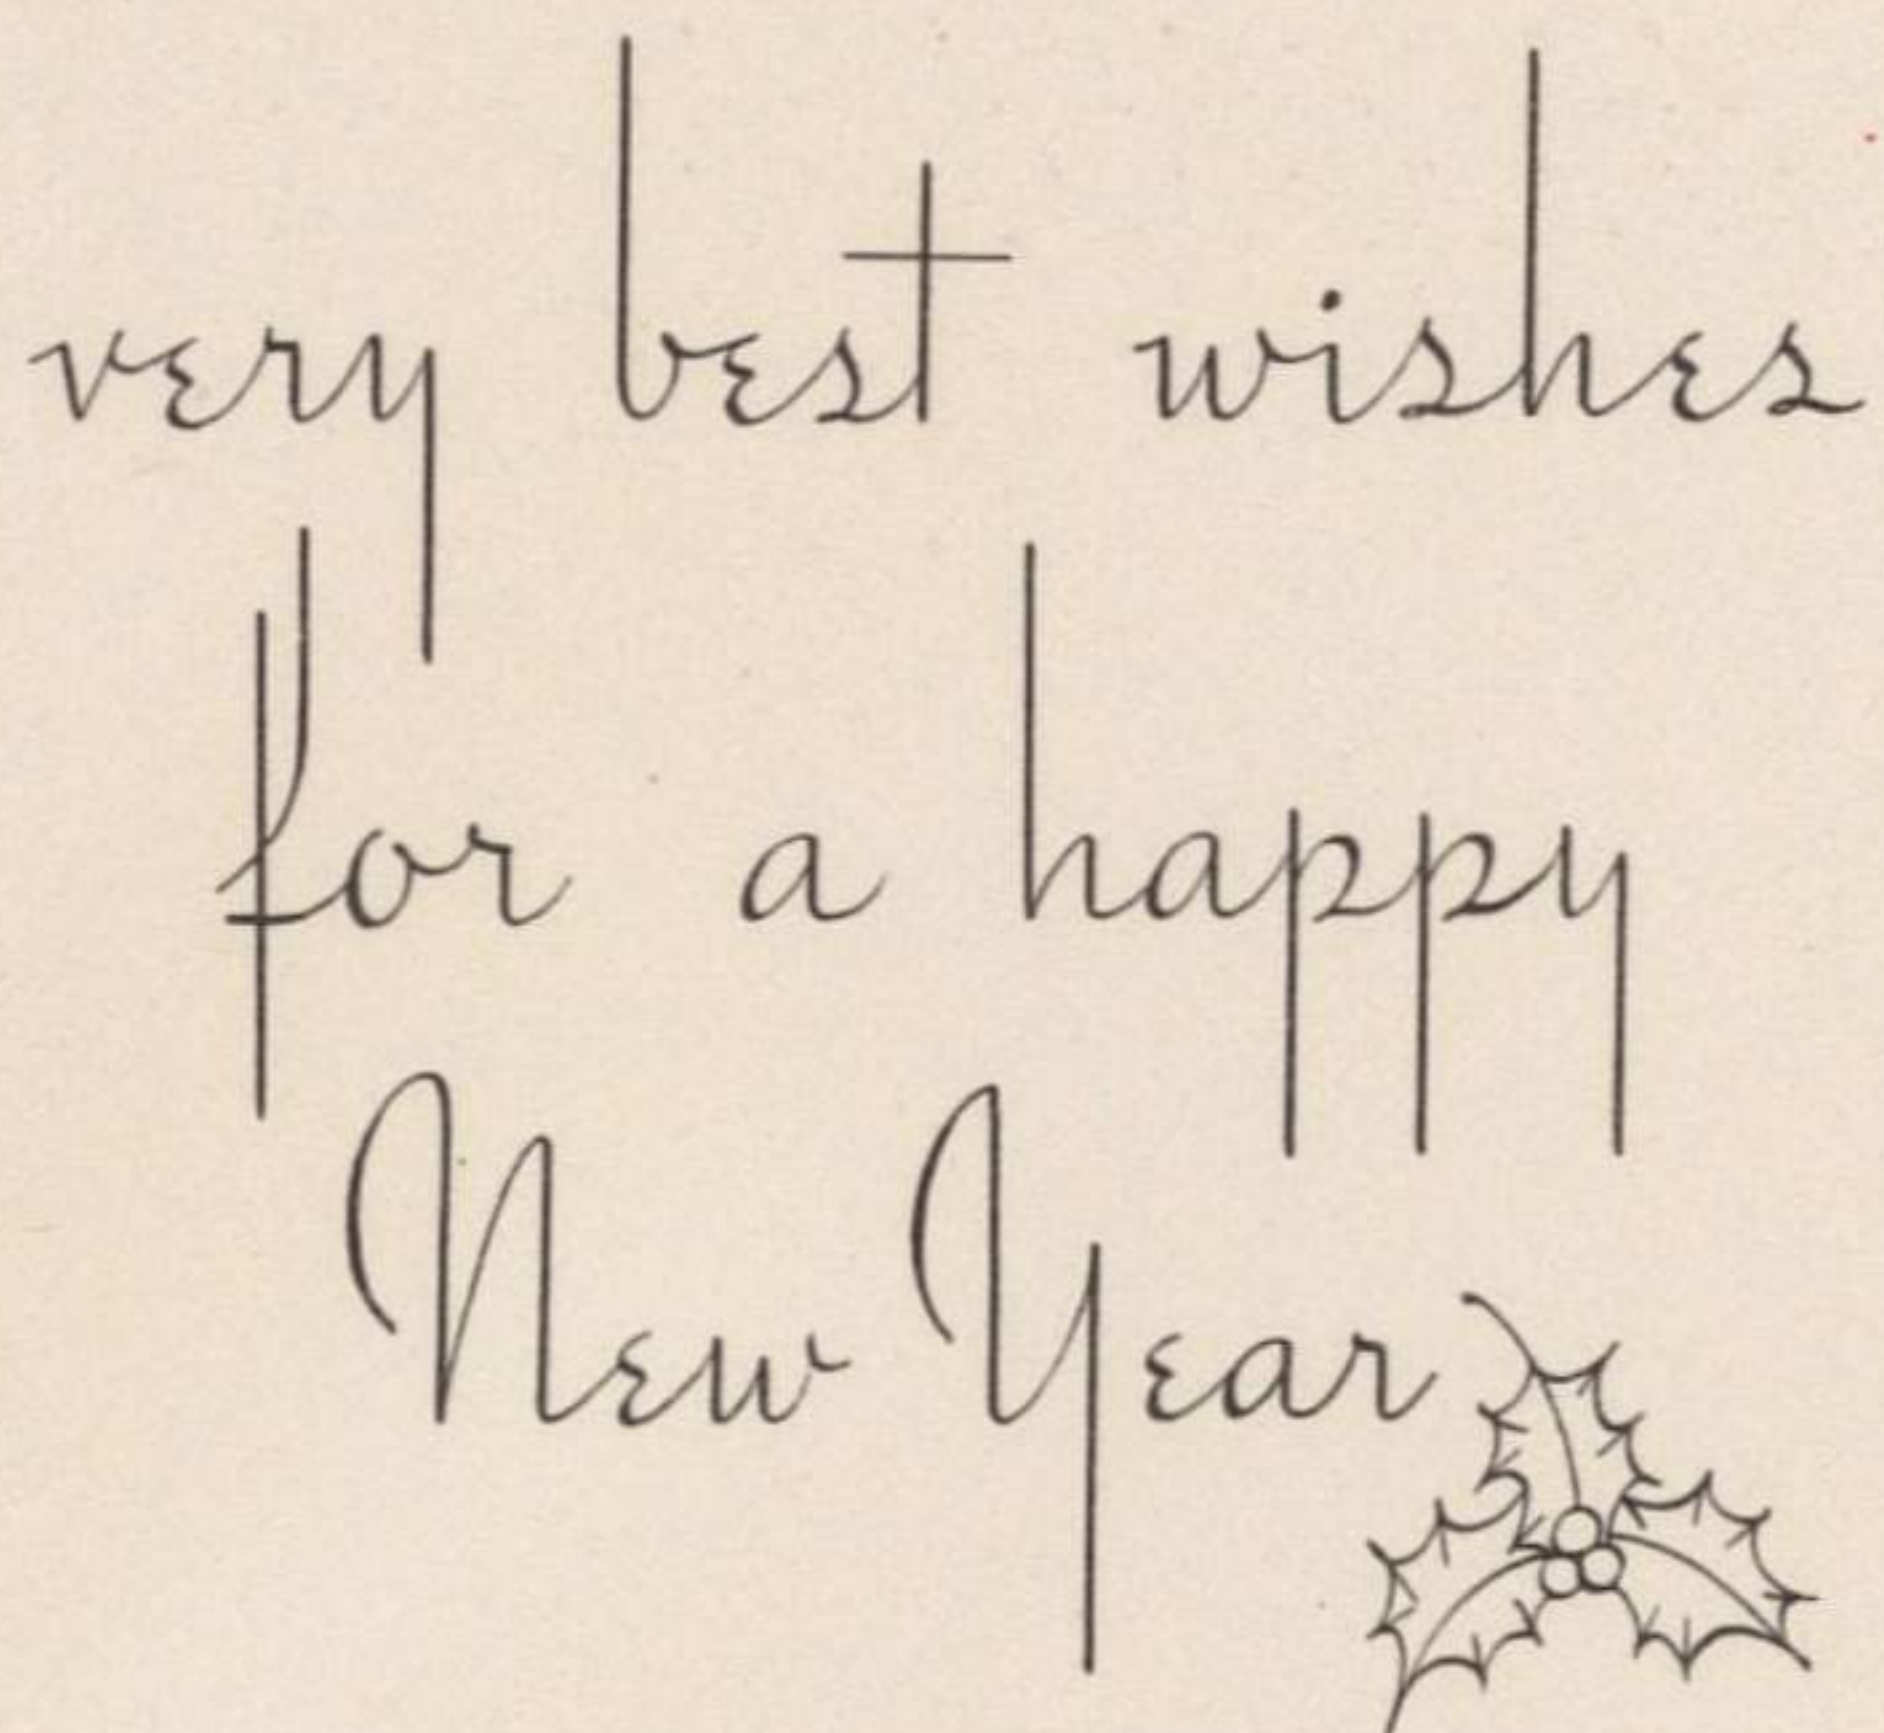 very best wishes
for a happy
New Year